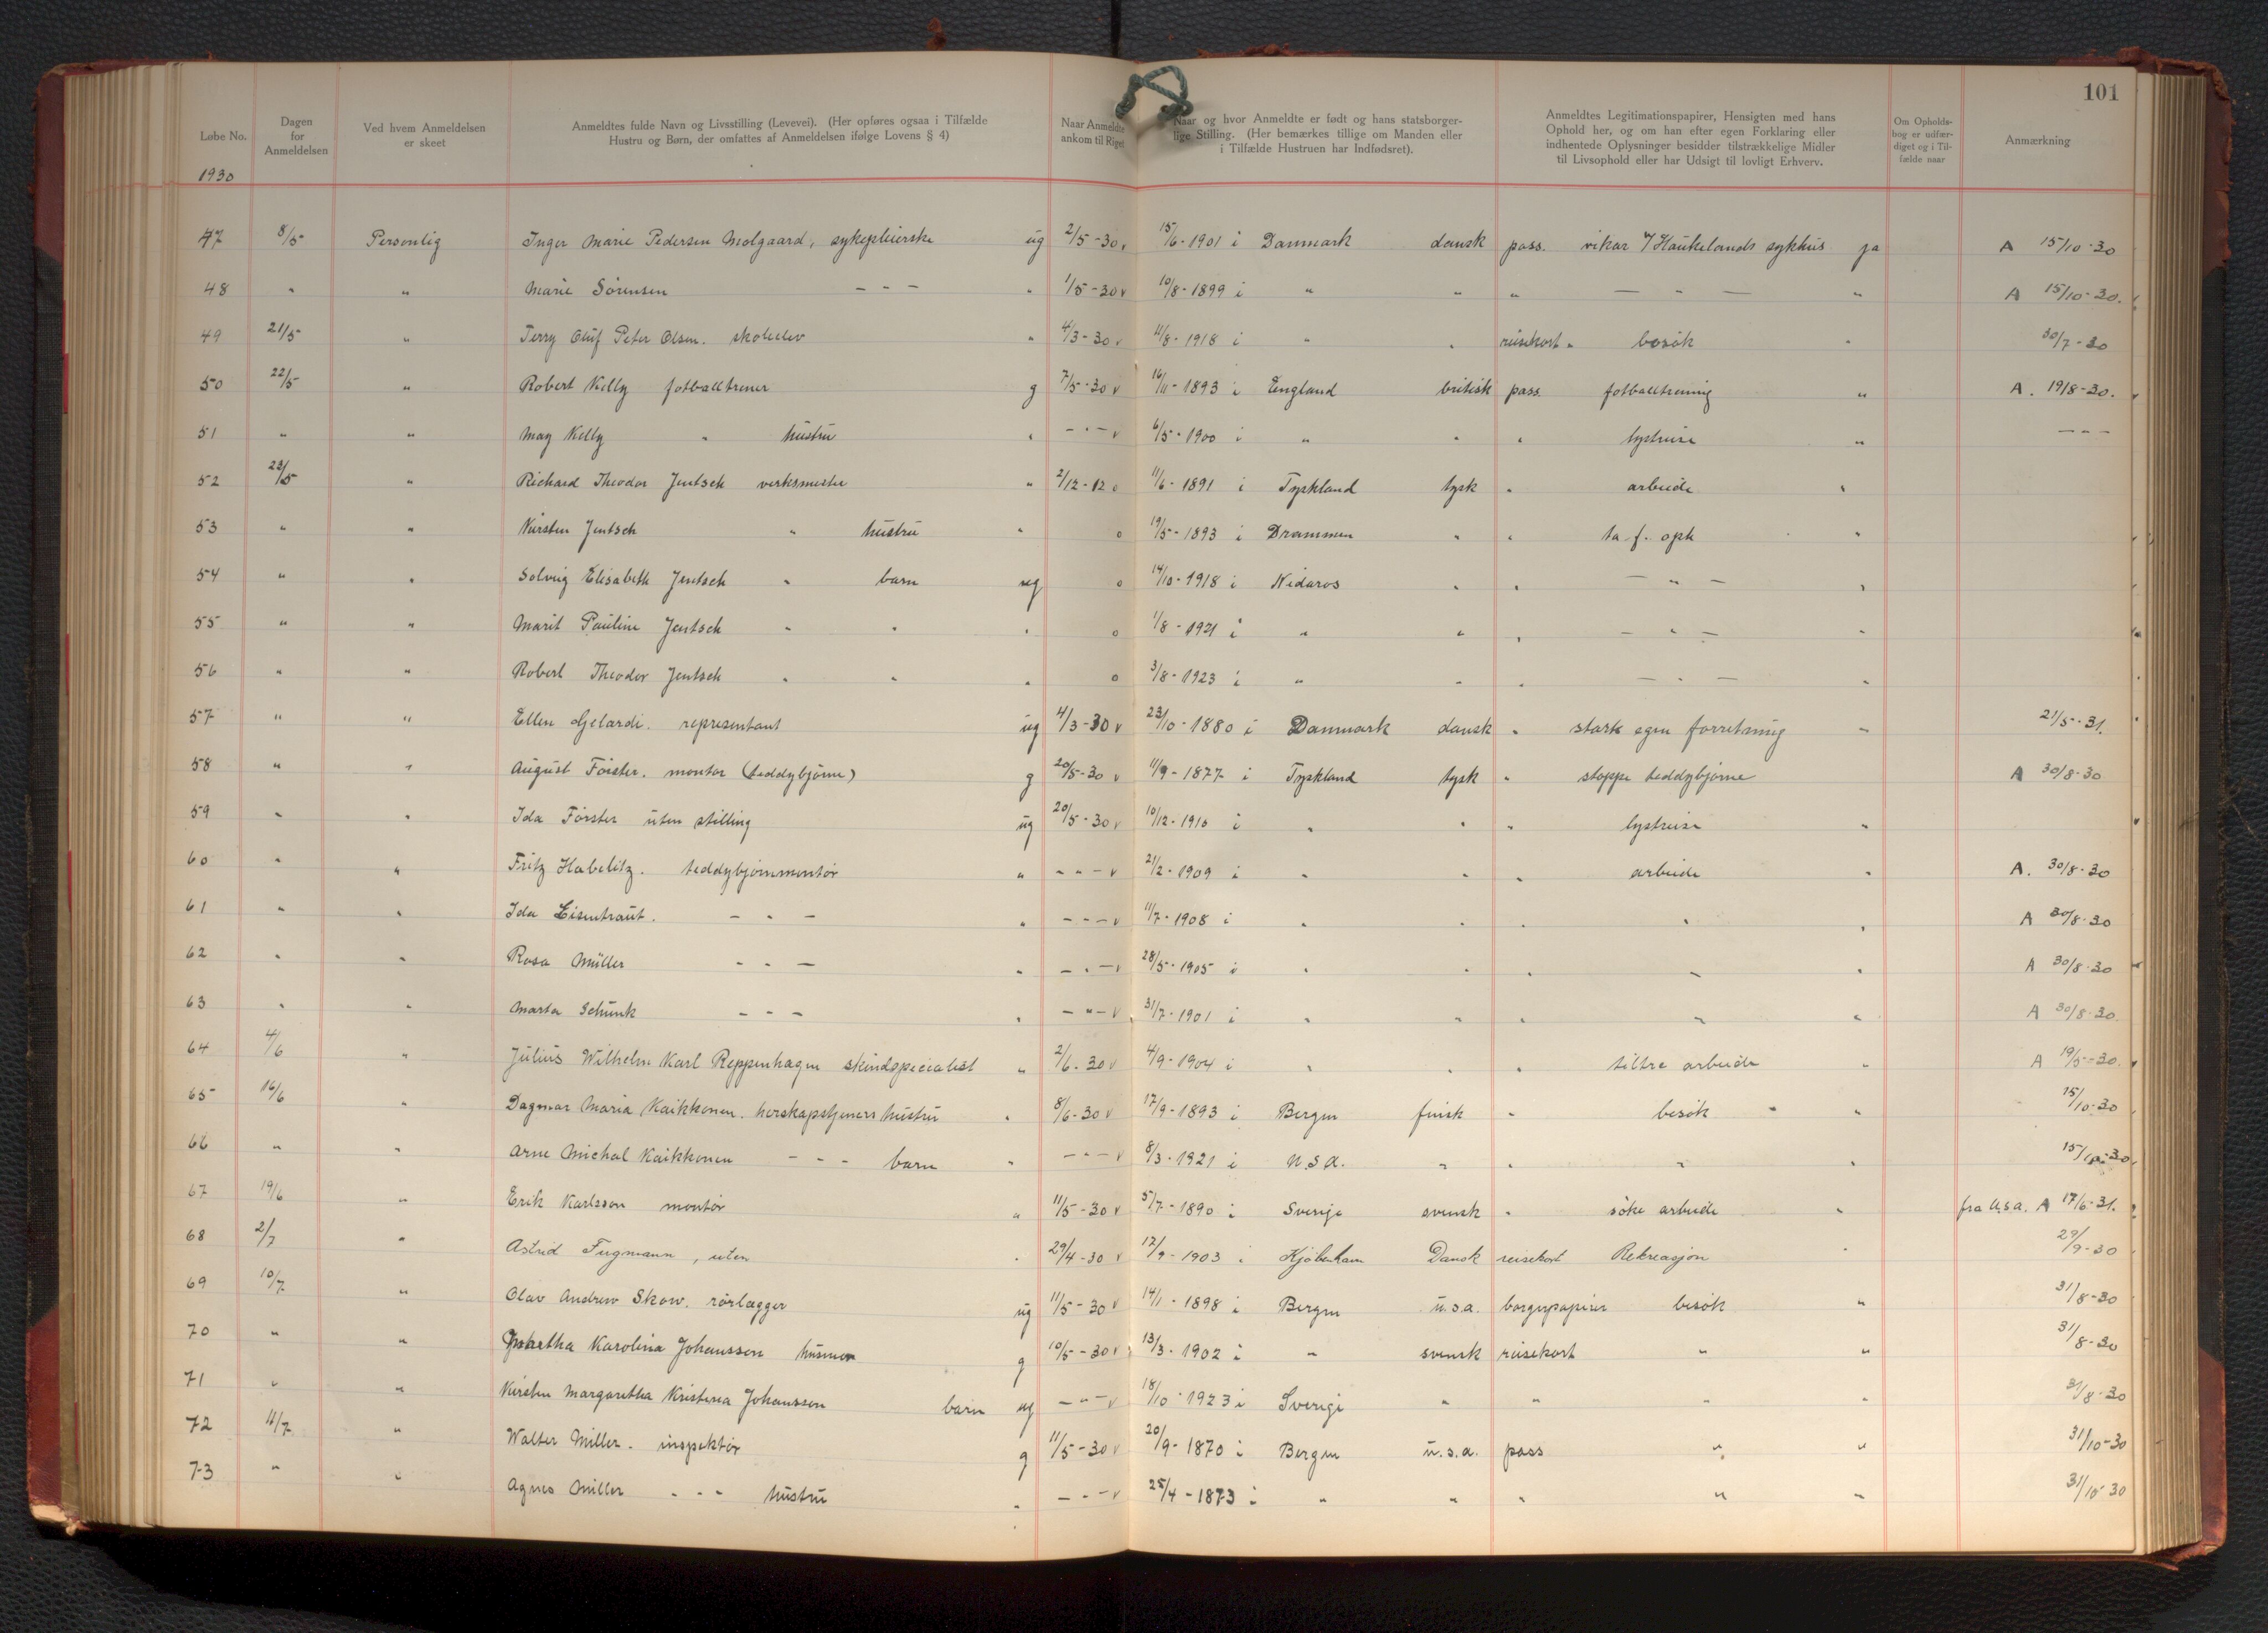 101
Løbe No. | Dagen for Anmeldelsen | Ved hvem Anmeldelsen er skeet | Anmeldtes fulde Navn og Livsstilling (Levevei). (Her opføres ogsaa i Tilfælde Hustru og Børn, der omfattes af Anmeldelsen ifølge Lovens § 4) | Naar Anmeldte ankom til Riget | Naar og hvor Anmeldte er født og hans statsborgerlige Stilling. (Her bemærkes tillige om Manden eller i Tilfælde Hustruen har Indfødsret). | Anmeldtes Legitimationspapirer, Hensigten med hans Ophold her, og om han efter egen Forklaring eller indhentede Oplysninger besidder tilstrækkelige Midler til Livsophold eller har Udsigt til lovligt Erhverv. | Om Opholdsbog er udfærdiget og i Tilfælde naar | Anmærkning
1930
47 8/5 Personlig Inger Marie Pedersen Molgaard, sykepleierske ug 2/5-30 v 15/6-1901 i Danmark dansk pass. vikar v/ Haukelands sykhus ja A 15/10-30
48 " " Marie Sörensen - - - " 1/5-30 v 10/8-1899 i " " " — " — " A 15/10-30.
49 21/5 " Terry Oluf Peter Olsen. skoleelev " 4/3-30 v 11/8-1918 i " " reisekort " besök " 30/7-30
50 22/5 " Robert Kelly fotballtrener g 7/5-30 v 16/11-1893 i England britisk pass fotballtrening " A. 19/8-30.
51 " " May Kelly " hustru " - " - v 6/5-1900 i " " " lystreise " - " -
52 23/5 " Richard Theodor Jentsch verksmester " 2/12-12 o 11/6-1891 i Tyskland tysk " arbeide "
53 " " Kirsten Jentsch " hustru " o 19/5-1893 i Drammen " " ta f. oph "
54 " " Solveig Elisabeth Jentsch " barn ug o 14/10-1918 i Nidaros " " — " — "
55 " " Marit Pauline Jentsch " " " o 1/8-1921 i " " " — " — "
56 " " Robert Theodor Jentsch " " " o 3/8-1923 i " " " — " — "
57 " " Ellen Gelardi. representant ug 4/3-30 v 23/10-1880 i Danmark dansk " starte egen forretning " 21/5-31.
58 " " August Förster. montør (teddybjörne) g 20/5-30 v 11/9-1877 i Tyskland tysk " stoppe teddybjörne A 30/8-30
59 " " Ida Förster uten stilling ug 20/5-30 v 10/12-1910 i " " " lystreise "
60 " " Fritz Habelitz. teddybjörnmontör " - " - v 21/2-1909 i " " " arbeide " A. 30/8-30
61 " " Ida Eisentraut. - " - " - " - v 11/7-1908 i " " " " " A 30/8-30
62 " " Rosa Müller - " - " - " - v 28/5-1905 i " " " " " A 30/8-30
63 " " Marta Schunk - - - " - " - v 31/7-1901 i " " " " " A 30/8-30.
64 4/6 " Julius Wilhelm Karl Reppenhagen skindspecialist " 2/6-30 v 4/9-1904 i " " " tiltre arbeide " A 19/5-30.
65 16/6 " Dagmar Maria Kaikkonen. herskapstjeners hustru " 8/6-30 v 17/9-1893 i Bergen finsk " besök " " 15/10-30
66 " " Arne Michal Kaikkonen - " - barn " - " - v 8/3-1921 i U.S.A. " " " " 15/10-30
67 19/6 " Erik Karlsson montör " 11/5-30 v 5/7-1890 i Sverige svensk " söke arbeide " fra U.S.A. A 17/6-31.
68 2/7 " Astrid Fugmann, uten " 29/4-30 v 12/9-1903 i Kjöbenhavn Dansk reisekort Rekreasjon " 29/9-30
69 10/7 " Olav Andrew Skow. rörlægger ug 11/5-30 v 14/1-1898 i Bergen U.S.A. borgerpapirer besök " 31/8-30
70 " " Karolina Johansson husmor g 10/5-30 v 13/3-1902 i " svensk reisekort " " 31/8-30
71 " " Kirsten Margaretha Kristina Johansson barn ug - " - v 18/10-1923 i Sverige " " " " 31/8-30
72 11/7 " Walter Miller. inspektör g 11/5-30 v 20/9-1870 i Bergen U.S.A. pass " " 31/10-30
73 " " Agnes Miller - " - hustru " - " - v 25/4-1873 i " " " " " 31/10-30